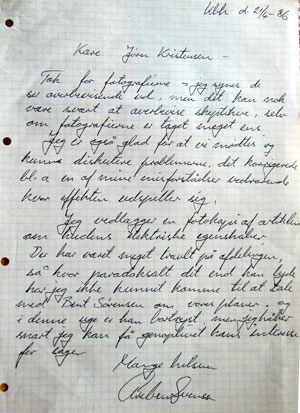 Kbh d. 21/4-86
Kære Jörn Kristensen –
Tak for fotografierne – jeg synes de
ser overbevisende ud, men det kan nok
være svært at overbevise skeptikere, selv
om fotografierne er taget meget ens.
Jeg er også glad for at vi mødtes og
kunne diskutere problemerne, det korrigerede
bl.a. en af mine misforståelser vedrørende
hvor effekten udspiller sig.
Jeg vedlægger en fotokopi af artiklen
om træets elektriske egenskaber.
Der har været meget travlt på afdelingen,
så hvor paradoksalt det end kan lyde
har jeg ikke kunnet komme til at tale
med Bent Sørensen om vores planer, og
i denne uge er han bortrejst, men jeg håber
snart jeg kan få genoplivet hans interesse
for sagen
Mange hilsner